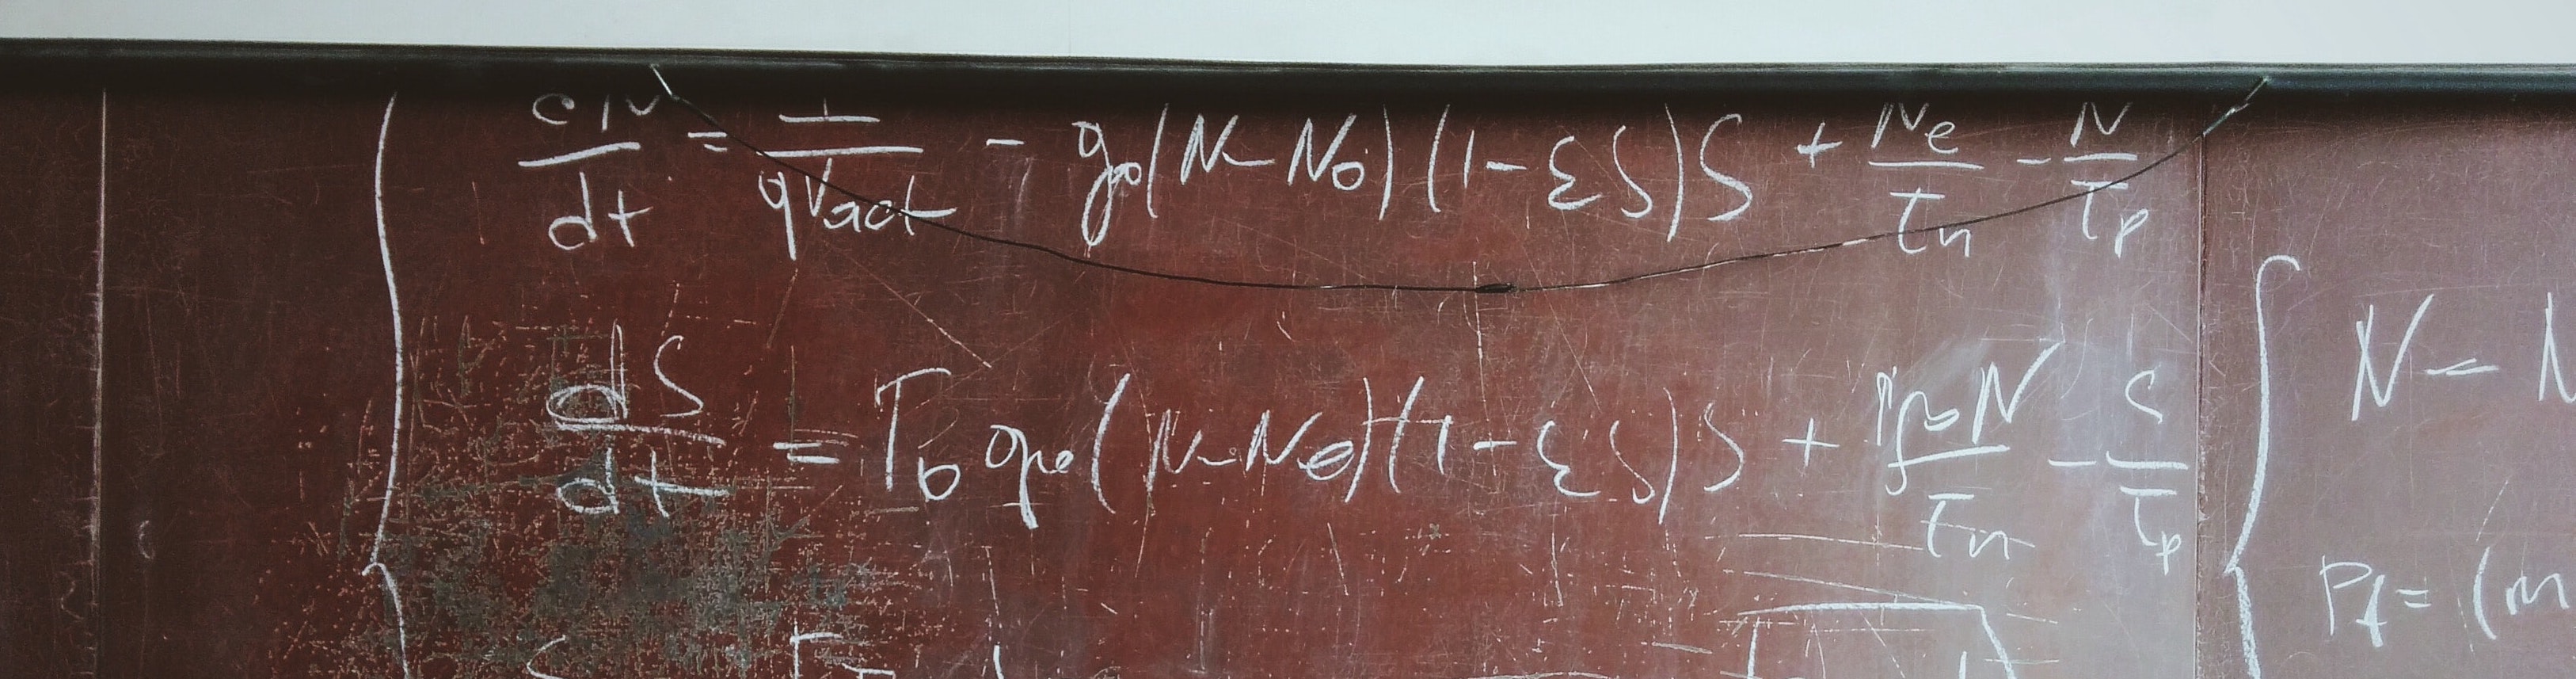 dN/dt = I/qVact - g0(N - N0)(1 - εS)S + Ne/τn - N/τp
dS/dt = Γ0 g0(N - N0)(1 - εS)S + N/τn - S/τp
N -
Pf = (m